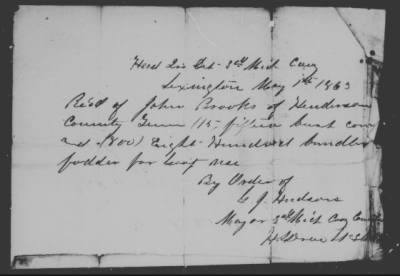 Head Qrs Det 3rd Mich Cav
Lexington May 1st 1863
Recd of John Brooks of Henderson
County Tenn (15) fifteen bush corn
and (800) Eight Hundred bundles
fodder for Govt use
By Order of
G. J. Hudson
Major 3rd Mich Cav